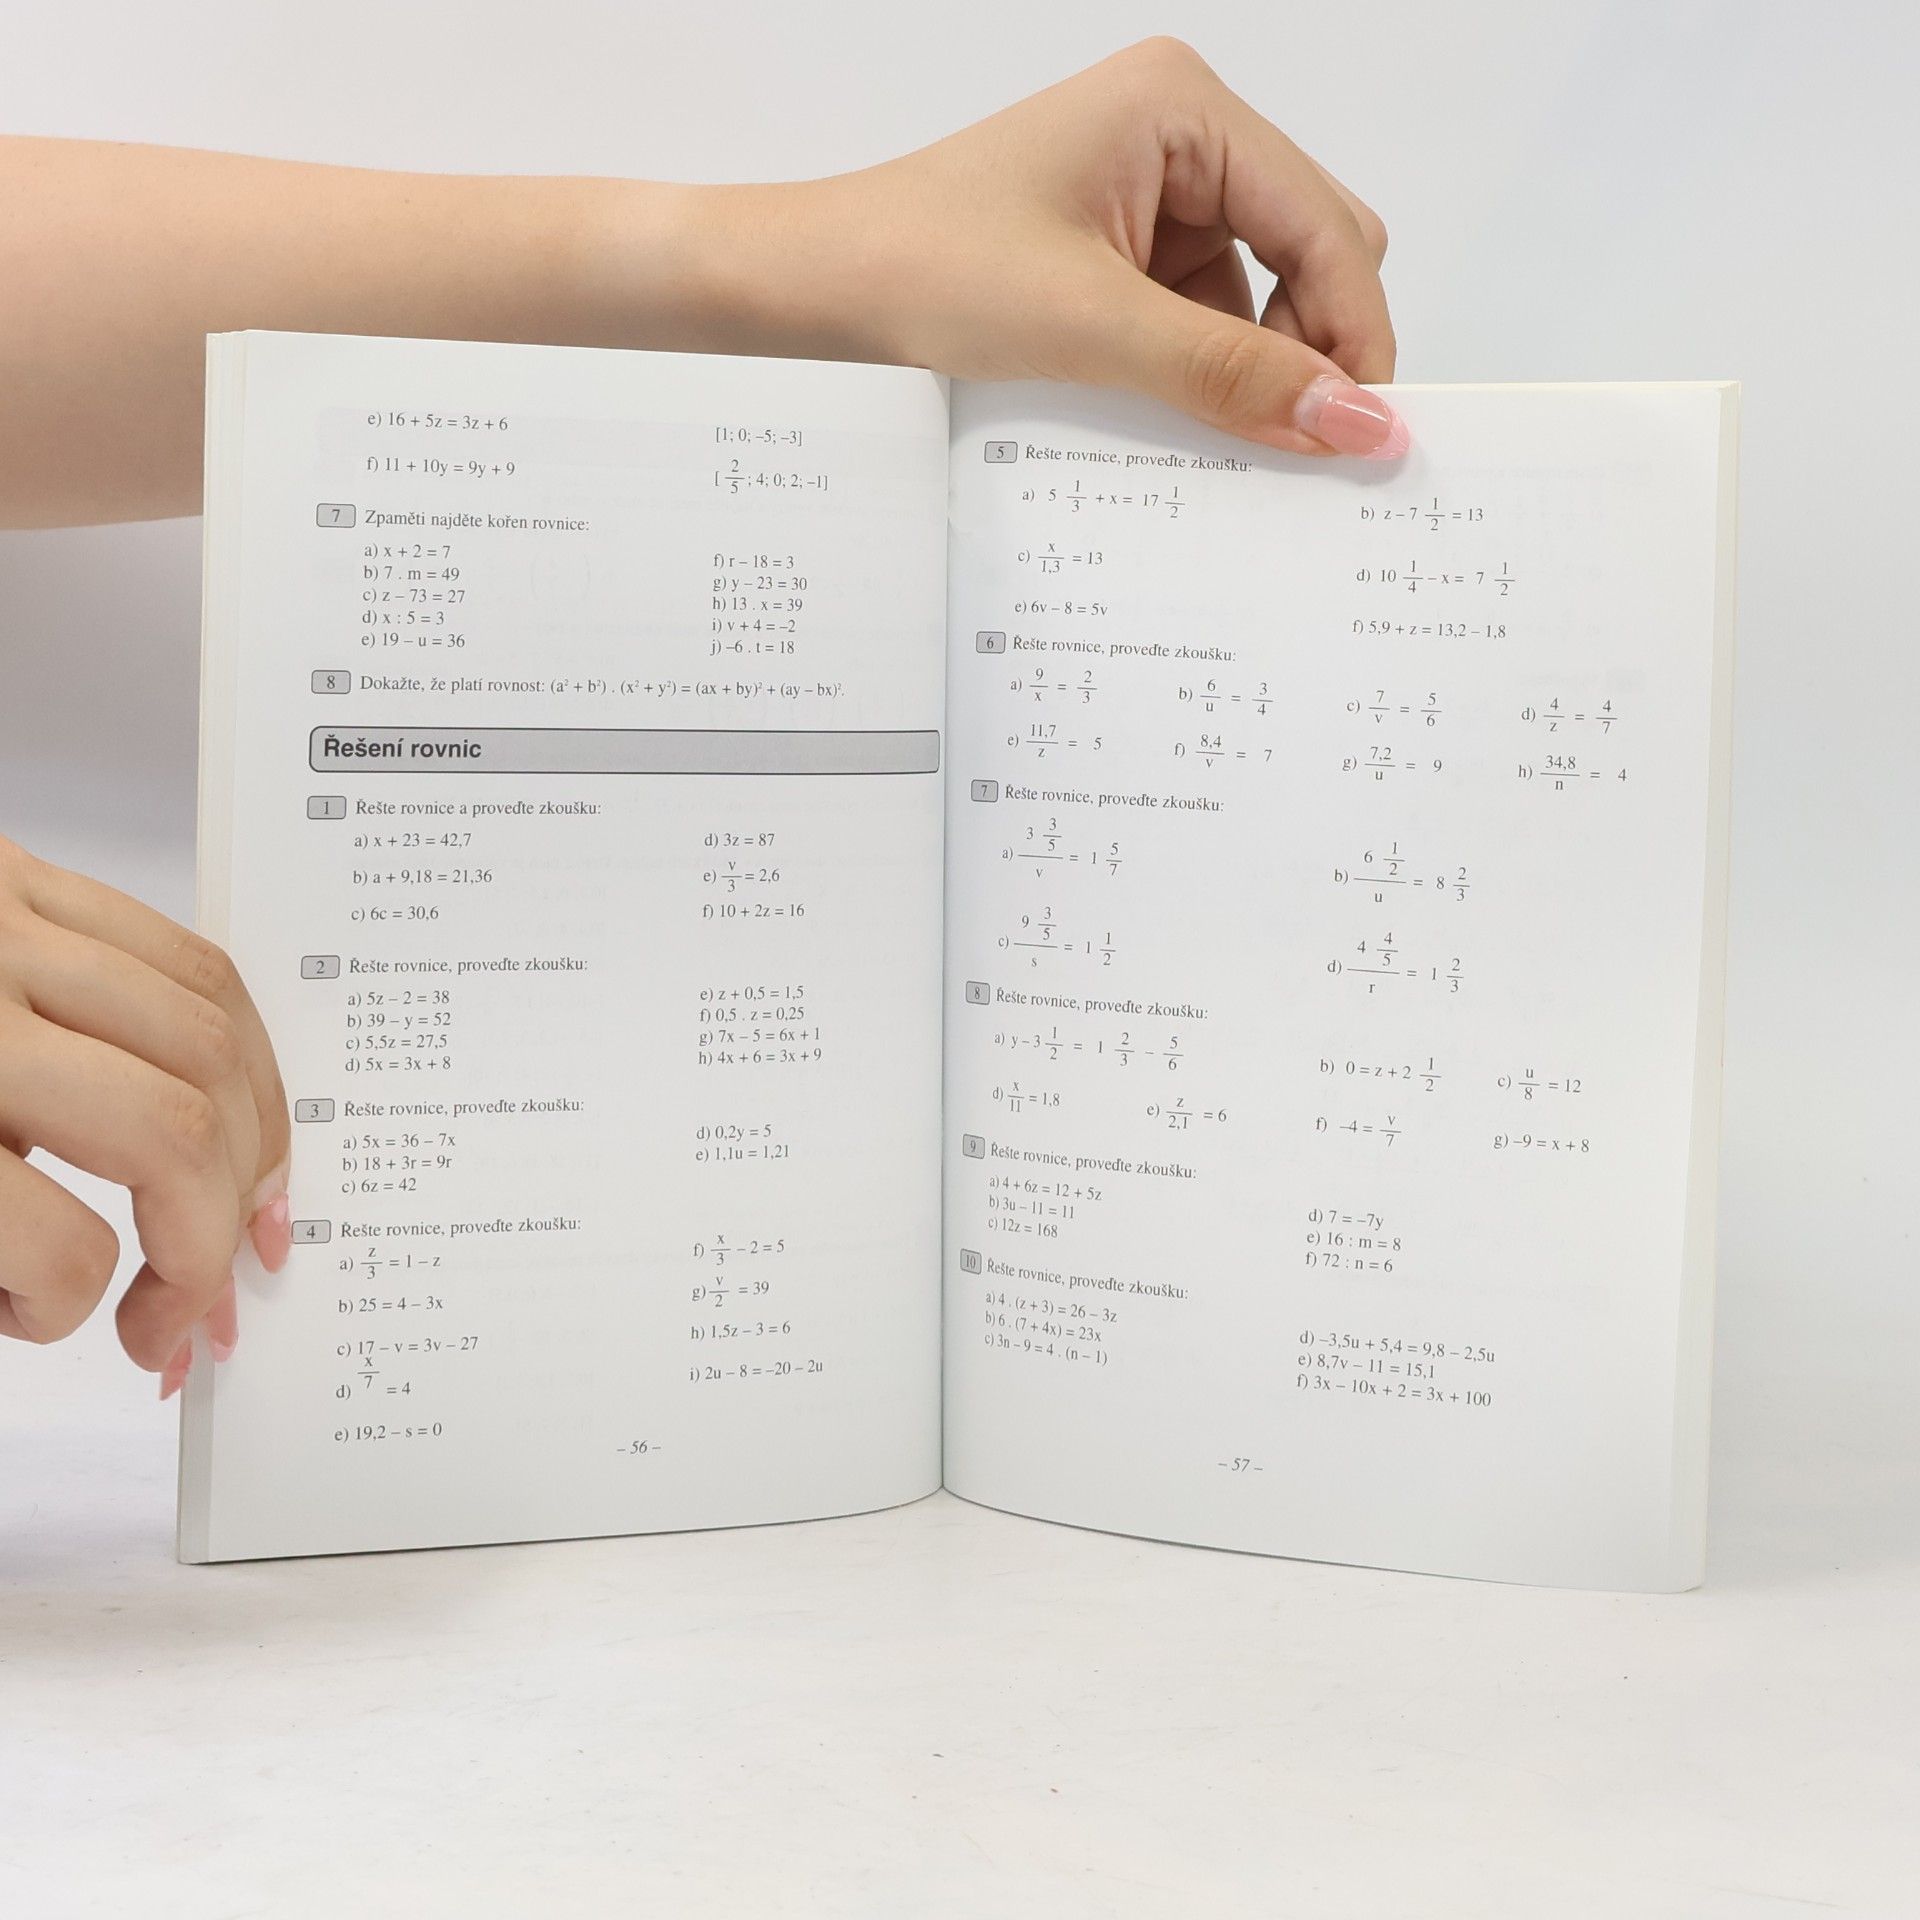 e) 16 + 5z = 3z + 6 [1; 0; –5; –3]
f) 11 + 10y = 9y + 9 [2/5; 4; 0; 2; –1]
7 Zpaměti najděte kořen rovnice:
a) x + 2 = 7 f) r – 18 = 3
b) 7 . m = 49 g) y – 23 = 30
c) z – 73 = 27 h) 13 . x = 39
d) x : 5 = 3 i) v + 4 = –2
e) 19 – u = 36 j) –6 . t = 18
8 Dokažte, že platí rovnost: (a² + b²) . (x² + y²) = (ax + by)² + (ay – bx)².
Řešení rovnic
1 Řešte rovnice a proveďte zkoušku:
a) x + 23 = 42,7 d) 3z = 87
b) a + 9,18 = 21,36 e) v/3 = 2,6
c) 6c = 30,6 f) 10 + 2z = 16
2 Řešte rovnice, proveďte zkoušku:
a) 5z – 2 = 38 e) z + 0,5 = 1,5
b) 39 – y = 52 f) 0,5 . z = 0,25
c) 5,5z = 27,5 g) 7x – 5 = 6x + 1
d) 5x = 3x + 8 h) 4x + 6 = 3x + 9
3 Řešte rovnice, proveďte zkoušku:
a) 5x = 36 – 7x d) 0,2y = 5
b) 18 + 3r = 9r e) 1,1u = 1,21
c) 6z = 42
4 Řešte rovnice, proveďte zkoušku:
a) z/3 = 1 – z f) x/3 – 2 = 5
b) 25 = 4 – 3x g) v/2 = 39
c) 17 – v = 3v – 27 h) 1,5z – 3 = 6
d) x/7 = 4 i) 2u – 8 = –20 – 2u
e) 19,2 – s = 0
– 56 –
5 Řešte rovnice, proveďte zkoušku:
a) 5 1/3 + x = 17 1/2 b) z – 7 1/2 = 13
c) x/1,3 = 13 d) 10 1/4 – x = 7 1/2
e) 6v – 8 = 5v f) 5,9 + z = 13,2 – 1,8
6 Řešte rovnice, proveďte zkoušku:
a) 9/x = 2/3 b) 6/u = 3/4 c) 7/v = 5/6 d) 4/z = 4/7
e) 11,7/z = 5 f) 8,4/v = 7 g) 7,2/u = 9 h) 34,8/n = 4
7 Řešte rovnice, proveďte zkoušku:
a) 3 3/5 / v = 1 5/7 b) 6 1/2 / u = 8 2/3
c) 9 3/5 / s = 1 1/2 d) 4 4/5 / r = 1 2/3
8 Řešte rovnice, proveďte zkoušku:
a) y – 3 1/2 = 1 2/3 – 5/6 b) 0 = z + 2 1/2 c) u/8 = 12
d) x/11 = 1,8 e) z/2,1 = 6 f) –4 = v/7 g) –9 = x + 8
9 Řešte rovnice, proveďte zkoušku:
a) 4 + 6z = 12 + 5z d) 7 = –7y
b) 3u – 11 = 11 e) 16 : m = 8
c) 12z = 168 f) 72 : n = 6
10 Řešte rovnice, proveďte zkoušku:
a) 4 . (z + 3) = 26 – 3z d) –3,5u + 5,4 = 9,8 – 2,5u
b) 6 . (7 + 4x) = 23x e) 8,7v – 11 = 15,1
c) 3n – 9 = 4 . (n – 1) f) 3x – 10x + 2 = 3x + 100
– 57 –